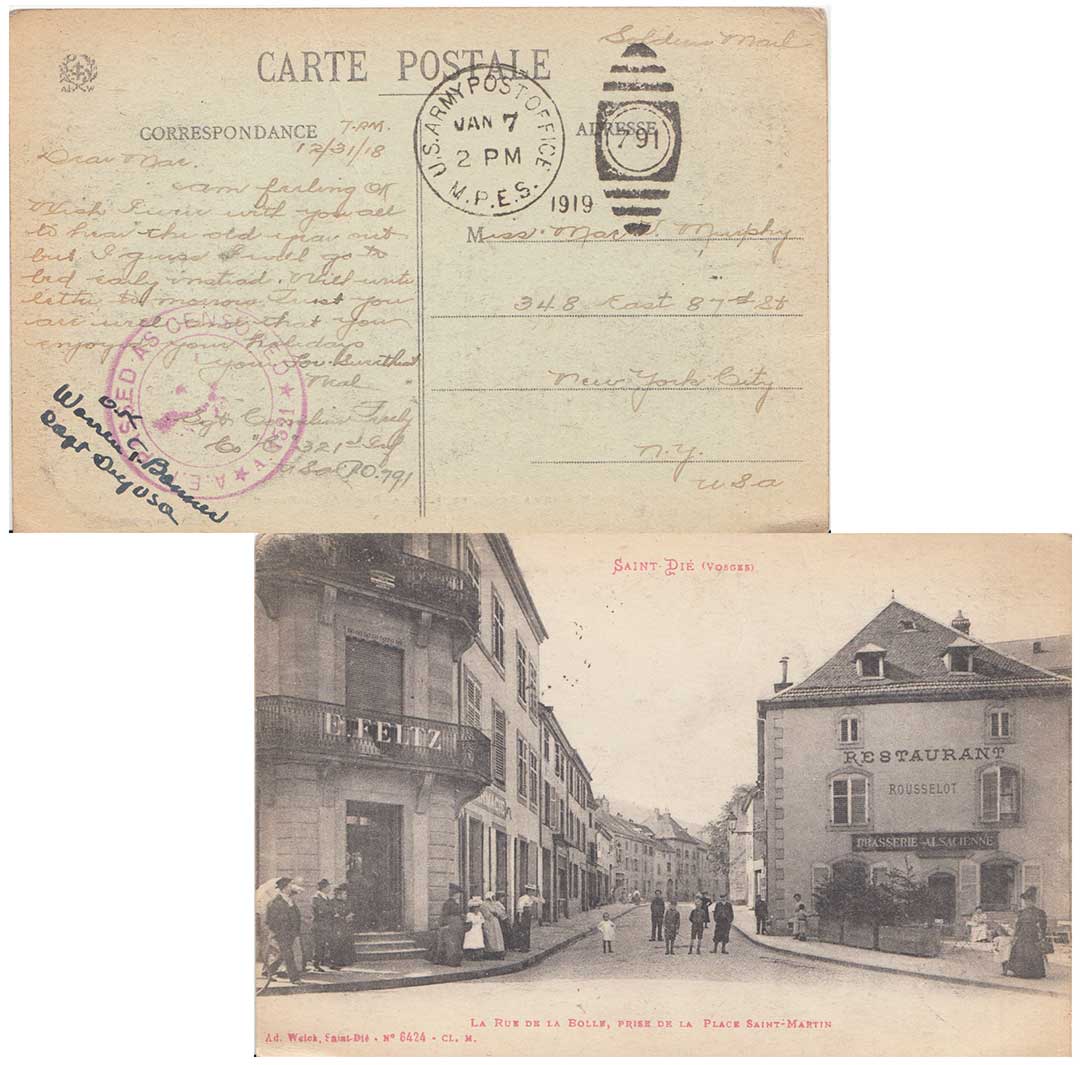 Soldiers Mail
CARTE POSTALE
CORRESPONDANCE
ADRESSE
U.S. ARMY POST OFFICE
JAN 7
2 PM
M.P.E.S.
1919
791
7 P.M.
12/31/18
Dear Mae.
am feeling OK
Wish I were with you all
to hear the old year out
but I guess I will go to
bed early instead. Will write
letter to morrow Trust you
are well and that you
enjoyed your holidays
Your
Sgt
Co "C" 321st
USA P.O. 791
A.E.F. PASSED AS CENSORED
A.4521
OK
Warren T.
Capt USA
Miss. Mae Murphy
348 East 87th St
New York City
N.Y.
USA
SAINT-DIÉ (VOSGES)
E. FELTZ
RESTAURANT
ROUSSELOT
BRASSERIE ALSACIENNE
LA RUE DE LA BOLLE, PRISE DE LA PLACE SAINT-MARTIN
Ad. Weick, Saint-Dié - Nº 6424 - CL. M.